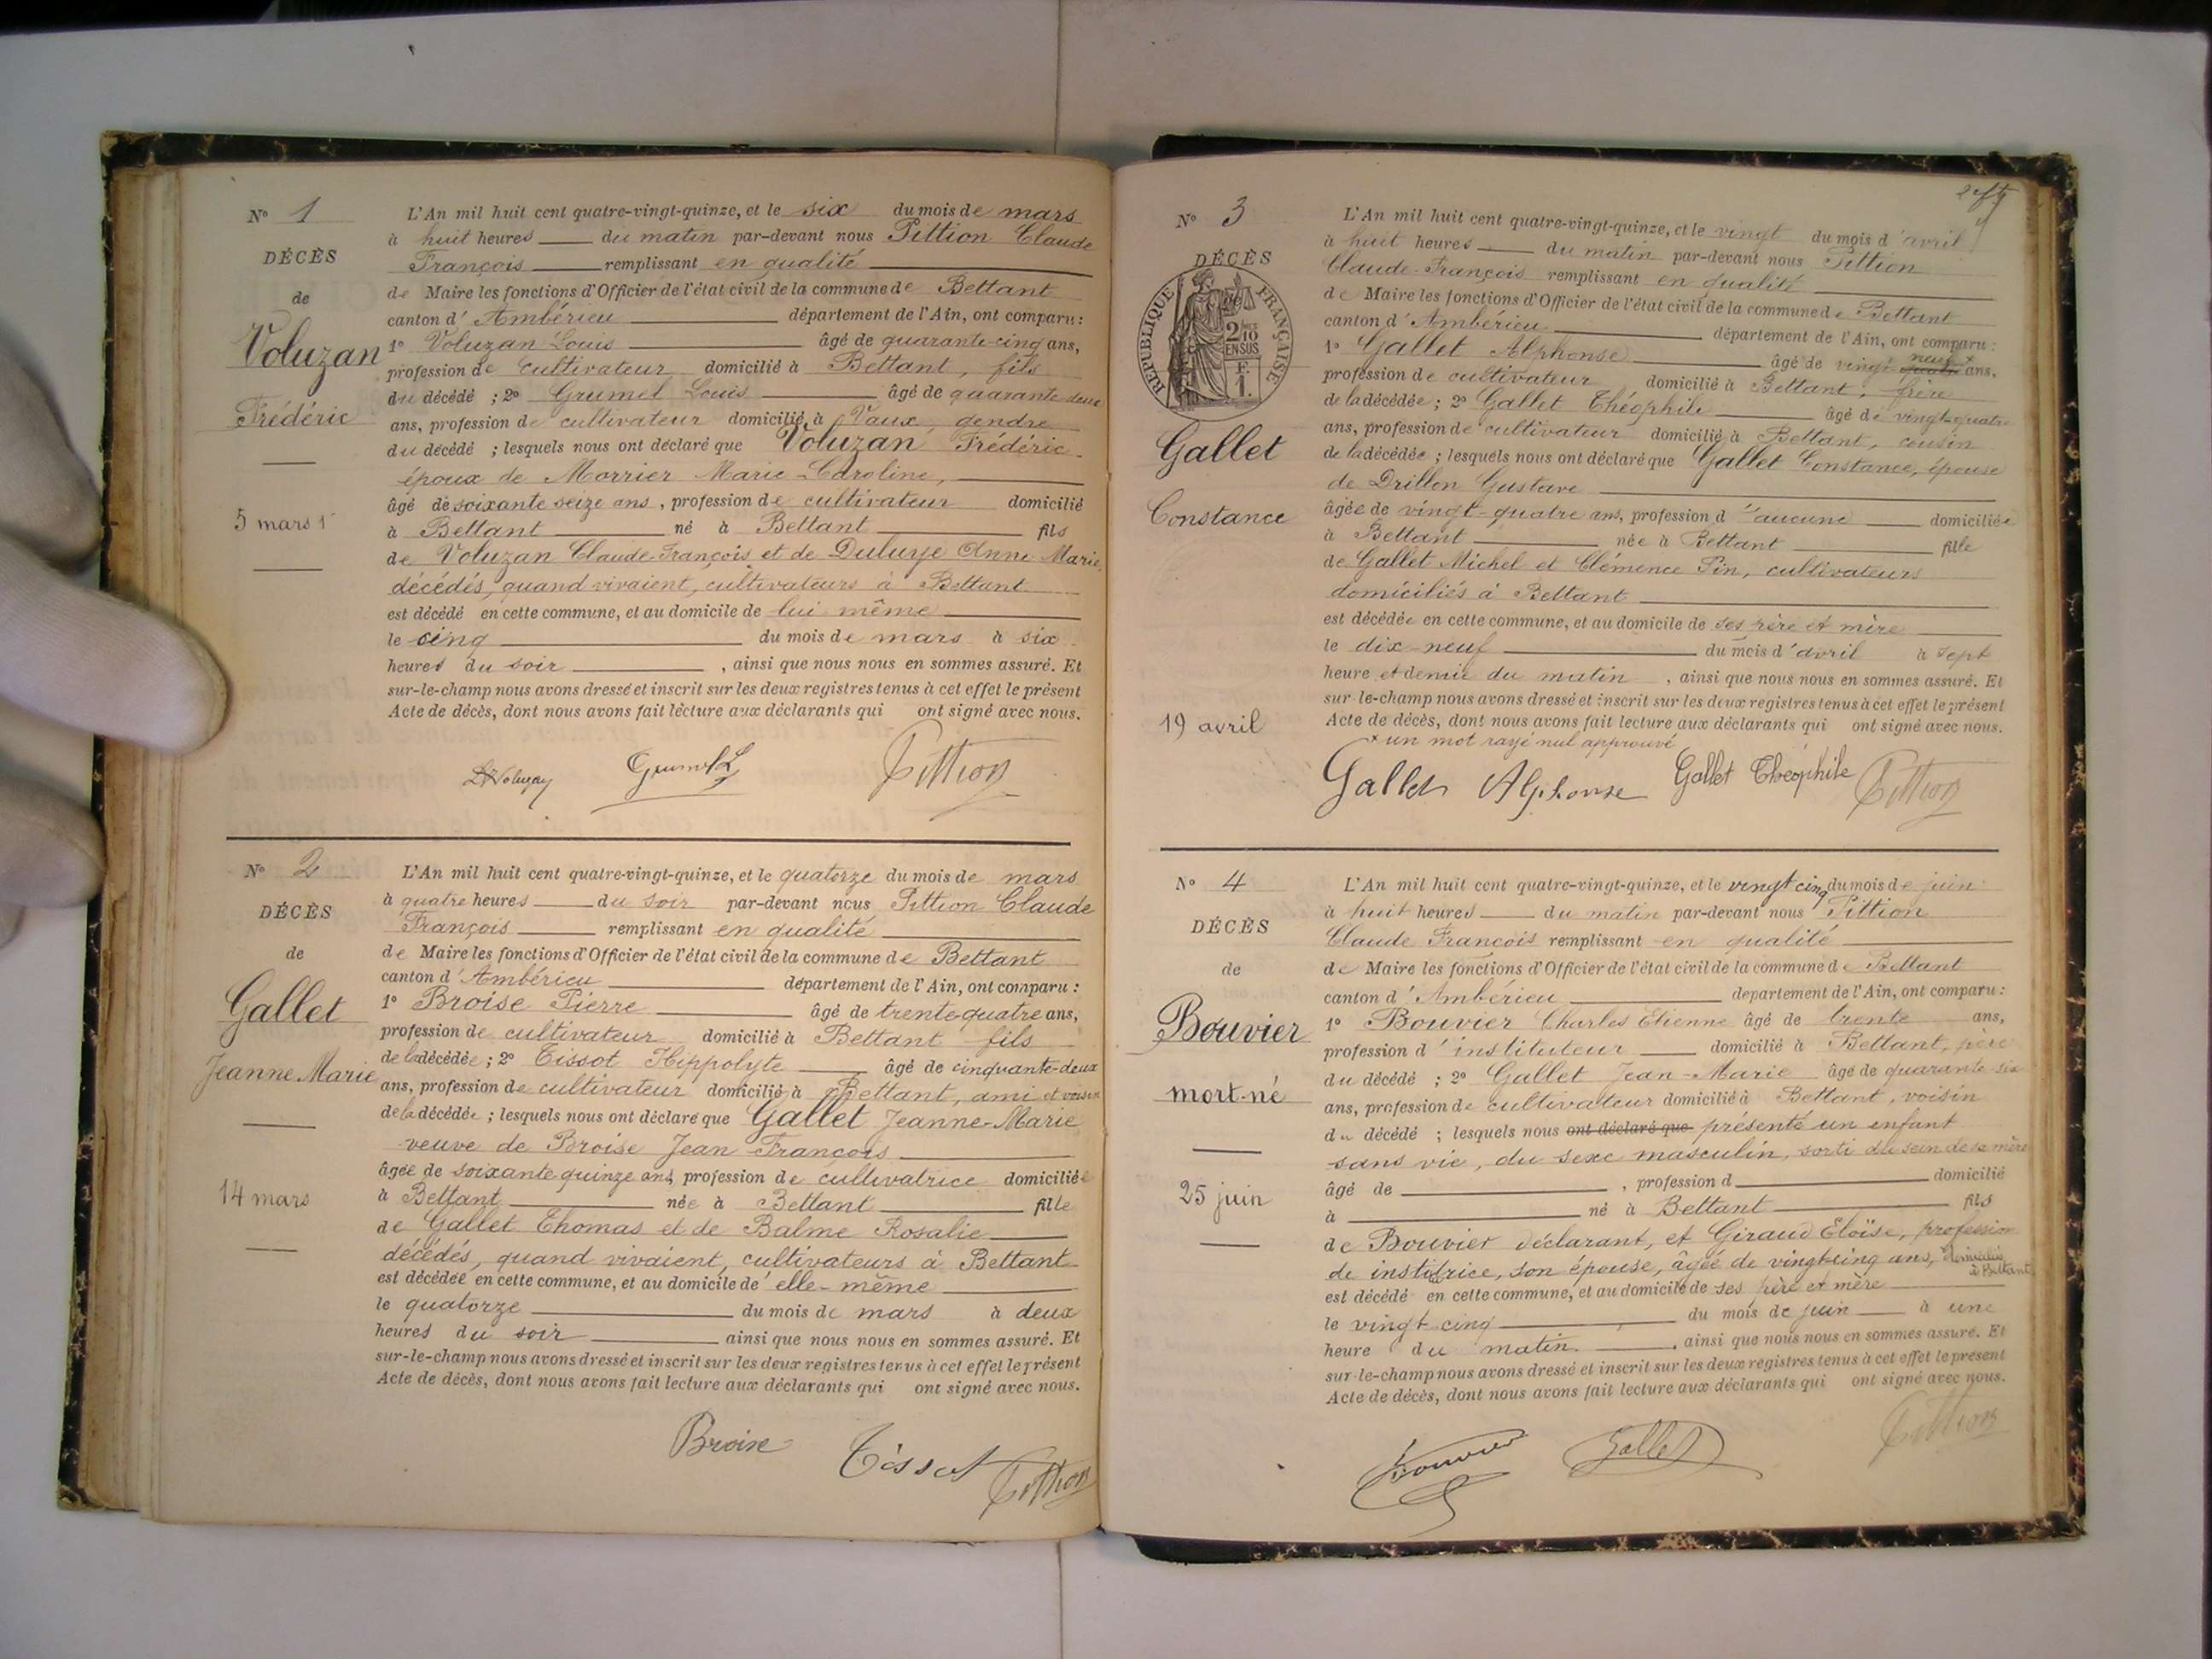 N° 1
DÉCÈS
de
Voluzan
Frédéric
5 mars
L'An mil huit cent quatre-vingt-quinze, et le six du mois de mars
à huit heures du matin par-devant nous Pittion Claude
François remplissant en qualité
de Maire les fonctions d'Officier de l'état civil de la commune de Bettant
canton d'Ambérieu département de l'Ain, ont comparu :
1° Voluzan Louis âgé de quarante-cinq ans,
profession de cultivateur domicilié à Bettant, fils
du décédé ; 2° Grumel Louis âgé de quarante deux
ans, profession de cultivateur domicilié à Vaux, gendre
du décédé ; lesquels nous ont déclaré que Voluzan Frédéric
époux de Morrier Marie-Caroline,
âgé de soixante seize ans, profession de cultivateur domicilié
à Bettant né à Bettant fils
de Voluzan Claude-François et de Duluye Anne Marie,
décédés, quand vivaient, cultivateurs à Bettant
est décédé en cette commune, et au domicile de lui même
le cinq du mois de mars à six
heures du soir, ainsi que nous nous en sommes assuré. Et
sur-le-champ nous avons dressé et inscrit sur les deux registres tenus à cet effet le présent
Acte de décès, dont nous avons fait lecture aux déclarants qui ont signé avec nous.
L Voluzan Grumel L Pittion
N° 2
DÉCÈS
de
Gallet
Jeanne Marie
14 mars
L'An mil huit cent quatre-vingt-quinze, et le quatorze du mois de mars
à quatre heures du soir par-devant nous Pittion Claude
François remplissant en qualité
de Maire les fonctions d'Officier de l'état civil de la commune de Bettant
canton d'Ambérieu département de l'Ain, ont comparu :
1° Broise Pierre âgé de trente-quatre ans,
profession de cultivateur domicilié à Bettant fils
de la décédée ; 2° Tissot Hippolyte âgé de cinquante-deux
ans, profession de cultivateur domicilié à Bettant, ami et voisin
de la décédée ; lesquels nous ont déclaré que Gallet Jeanne-Marie
veuve de Broise Jean François
âgée de soixante quinze ans, profession de cultivatrice domiciliée
à Bettant née à Bettant fille
de Gallet Thomas et de Balme Rosalie
décédés, quand vivaient, cultivateurs à Bettant
est décédée en cette commune, et au domicile de elle-même
le quatorze du mois de mars à deux
heures du soir ainsi que nous nous en sommes assuré. Et
sur-le-champ nous avons dressé et inscrit sur les deux registres tenus à cet effet le présent
Acte de décès, dont nous avons fait lecture aux déclarants qui ont signé avec nous.
Broise Tissot Pittion
N° 3
DÉCÈS
RÉPUBLIQUE FRANÇAISE
2/10 EN SUS
1 F.
Gallet
Constance
19 avril
L'An mil huit cent quatre-vingt-quinze, et le vingt du mois d'avril
à huit heures du matin par-devant nous Pittion
Claude-François remplissant en qualité
de Maire les fonctions d'Officier de l'état civil de la commune de Bettant
canton d'Ambérieu département de l'Ain, ont comparu :
1° Gallet Alphonse âgé de vingt-neuf + ans,
profession de cultivateur domicilié à Bettant, frère
de la décédée ; 2° Gallet Théophile âgé de vingt-quatre
ans, profession de cultivateur domicilié à Bettant, cousin
de la décédée ; lesquels nous ont déclaré que Gallet Constance, épouse
de Drillon Gustave
âgée de vingt-quatre ans, profession d'aucune domiciliée
à Bettant née à Bettant fille
de Gallet Michel et Clémence Pin, cultivateurs
domiciliés à Bettant
est décédée en cette commune, et au domicile de ses père et mère
le dix-neuf du mois d'avril à sept
heure et demie du matin, ainsi que nous nous en sommes assuré. Et
sur-le-champ nous avons dressé et inscrit sur les deux registres tenus à cet effet le présent
Acte de décès, dont nous avons fait lecture aux déclarants qui ont signé avec nous.
+ un mot rayé nul approuvé
Gallet Alphonse Gallet Théophile Pittion
N° 4
DÉCÈS
de
Bouvier
mort-né
25 juin
L'An mil huit cent quatre-vingt-quinze, et le vingt cinq du mois de juin
à huit heures du matin par-devant nous Pittion
Claude François remplissant en qualité
de Maire les fonctions d'Officier de l'état civil de la commune de Bettant
canton d'Ambérieu département de l'Ain, ont comparu :
1° Bouvier Charles Etienne âgé de trente ans,
profession d'instituteur domicilié à Bettant, père
du décédé ; 2° Gallet Jean-Marie âgé de quarante-six
ans, profession de cultivateur domicilié à Bettant, voisin
du décédé ; lesquels nous ont déclaré que présenté un enfant
sans vie, du sexe masculin, sorti du sein de sa mère
âgé de , profession d domicilié
à né à Bettant fils
de Bouvier déclarant, et Giraud Eloïse, profession
de institrice, son épouse, âgée de vingt-cinq ans, domiciliés à Bettant
est décédé en cette commune, et au domicile de ses père et mère
le vingt cinq du mois de juin à une
heure du matin, ainsi que nous nous en sommes assuré. Et
sur-le-champ nous avons dressé et inscrit sur les deux registres tenus à cet effet le présent
Acte de décès, dont nous avons fait lecture aux déclarants qui ont signé avec nous.
Bouvier Gallet Pittion